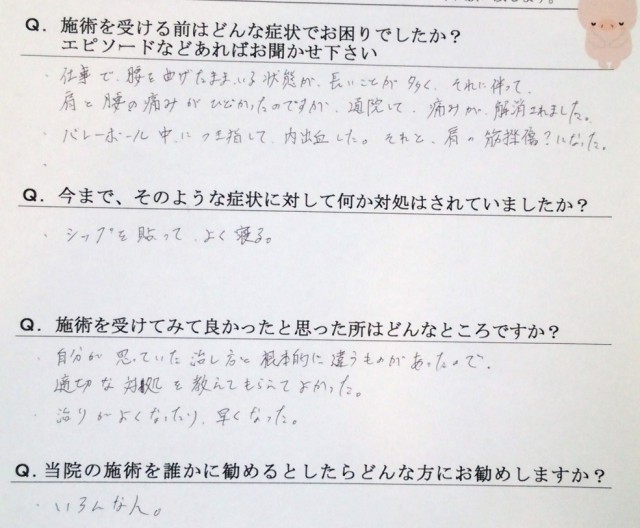 Q. 施術を受ける前はどんな症状でお困りでしたか？
エピソードなどあればお聞かせ下さい
・仕事で、腰を曲げたままいる状態が、長いことが多く、それに伴って、
肩と腰の痛みがひどかったのですが、通院して、痛みが、解消されました。
・バレーボール中につき指して、内出血した。それと、肩の筋挫傷？になった。
・
Q. 今まで、そのような症状に対して何か対処はされていましたか？
・シップを貼って、よく寝る。
Q. 施術を受けてみて良かったと思った所はどんなところですか？
・自分が思っていた治し方と根本的に違うものがあったので、
適切な対処を教えてもらえてよかった。
・治りがよくなったり、早くなった。
Q. 当院の施術を誰かに勧めるとしたらどんな方にお勧めしますか？
・いろんな人。